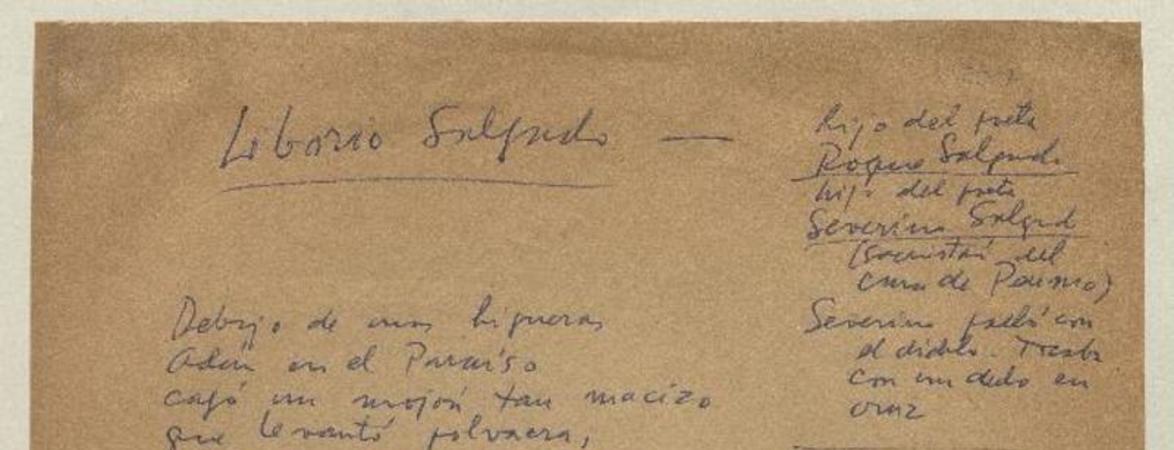 Liborio Salgado —
hijo del poeta
Roque Salgado
hijo del poeta
Severino Salgado
(sacristán del
cura de Peumo)
Severino palló con
el diablo. Tocaba
con un dedo en
cruz
Debajo de unas higueras
Adán en el Paraíso
cagó un mojón tan macizo
que levantó polvaera,